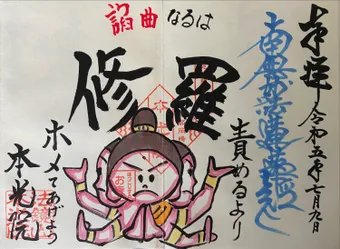 奉拝 令和五年七月九日
南無妙法蓮華経
諂曲なるは
修羅
責めるより
ホメてあげよう
本光院